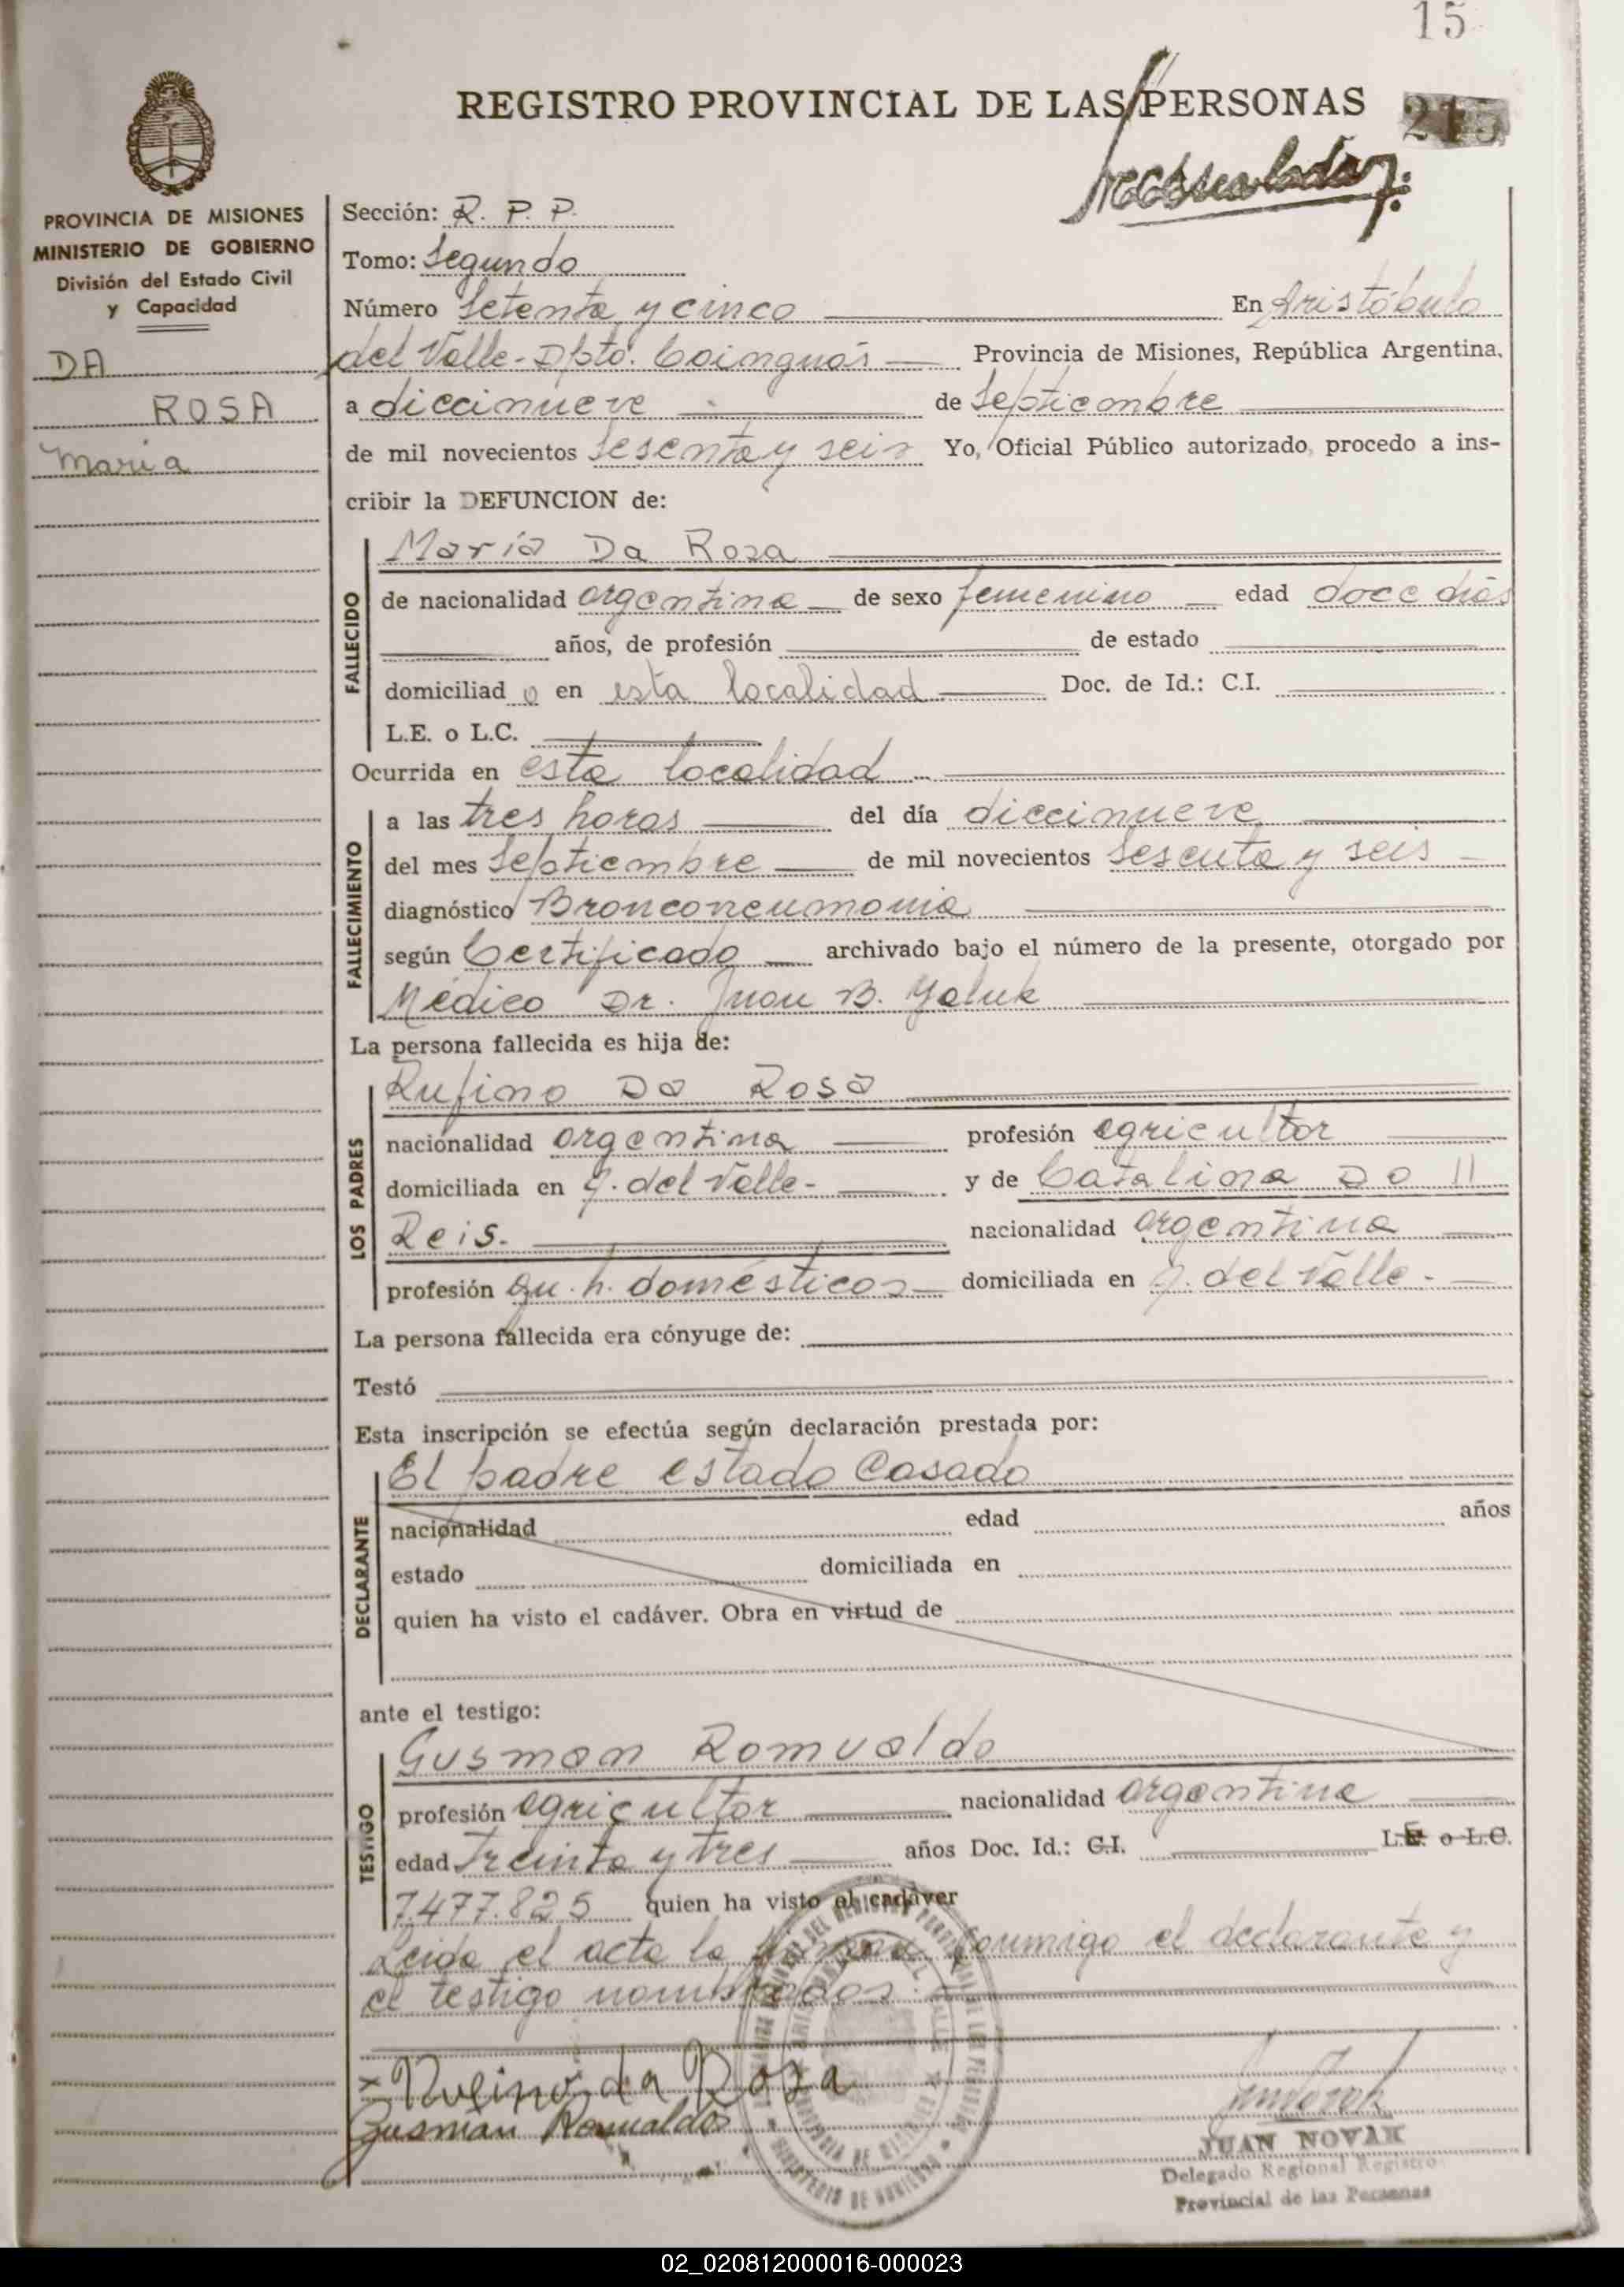 15
REGISTRO PROVINCIAL DE LAS PERSONAS
215
PROVINCIA DE MISIONES
MINISTERIO DE GOBIERNO
División del Estado Civil
y Capacidad
DA
ROSA
Maria
Sección: R. P. P.
Tomo: Segundo
Número Setenta y cinco En Aristóbulo
del Valle - Dpto. Cainguás Provincia de Misiones, República Argentina,
a diecinueve de Septiembre
de mil novecientos sesenta y seis Yo, Oficial Público autorizado, procedo a ins-
cribir la DEFUNCION de:
FALLECIDO
María Da Rosa
de nacionalidad argentina de sexo femenino edad doce días
años, de profesión de estado
domiciliad o en esta localidad Doc. de Id.: C.I.
L.E. o L.C.
Ocurrida en esta localidad
FALLECIMIENTO
a las tres horas del día diecinueve
del mes Septiembre de mil novecientos sesenta y seis
diagnóstico Bronconeumonia
según Certificado archivado bajo el número de la presente, otorgado por
Médico Dr. Juan B. Yaluk
La persona fallecida es hija de:
LOS PADRES
Rufino Da Rosa
nacionalidad argentina profesión agricultor
domiciliada en A. del Valle - y de Catalina Do
Reis. nacionalidad argentina
profesión qu. h. domésticos domiciliada en A. del Valle -
La persona fallecida era cónyuge de:
Testó
Esta inscripción se efectúa según declaración prestada por:
DECLARANTE
El padre estado Casado
nacionalidad edad años
estado domiciliada en
quien ha visto el cadáver. Obra en virtud de
ante el testigo:
TESTIGO
Gusman Romualdo
profesión agricultor nacionalidad argentina
edad Treinta y tres años Doc. Id.: C.I. L.E. o L.C.
7.477.825 quien ha visto el cadáver
Leida el acta la firman conmigo el declarante y
el testigo nombrados.
x Rufino da Rosa
Gusmán Romualdo
JUAN NOVAK
Delegado Regional Registro
Provincial de las Personas
02_020812000016-000023